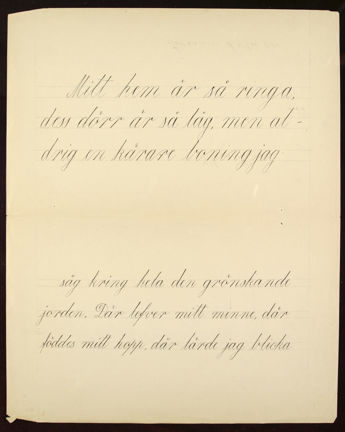 Mitt hem är så ringa,
dess dörr är så låg, men al-
drig en kärare boning jag
såg kring hela den grönskande
jorden. Där lefver mitt minne, där
föddes mitt hopp, där lärde jag blicka